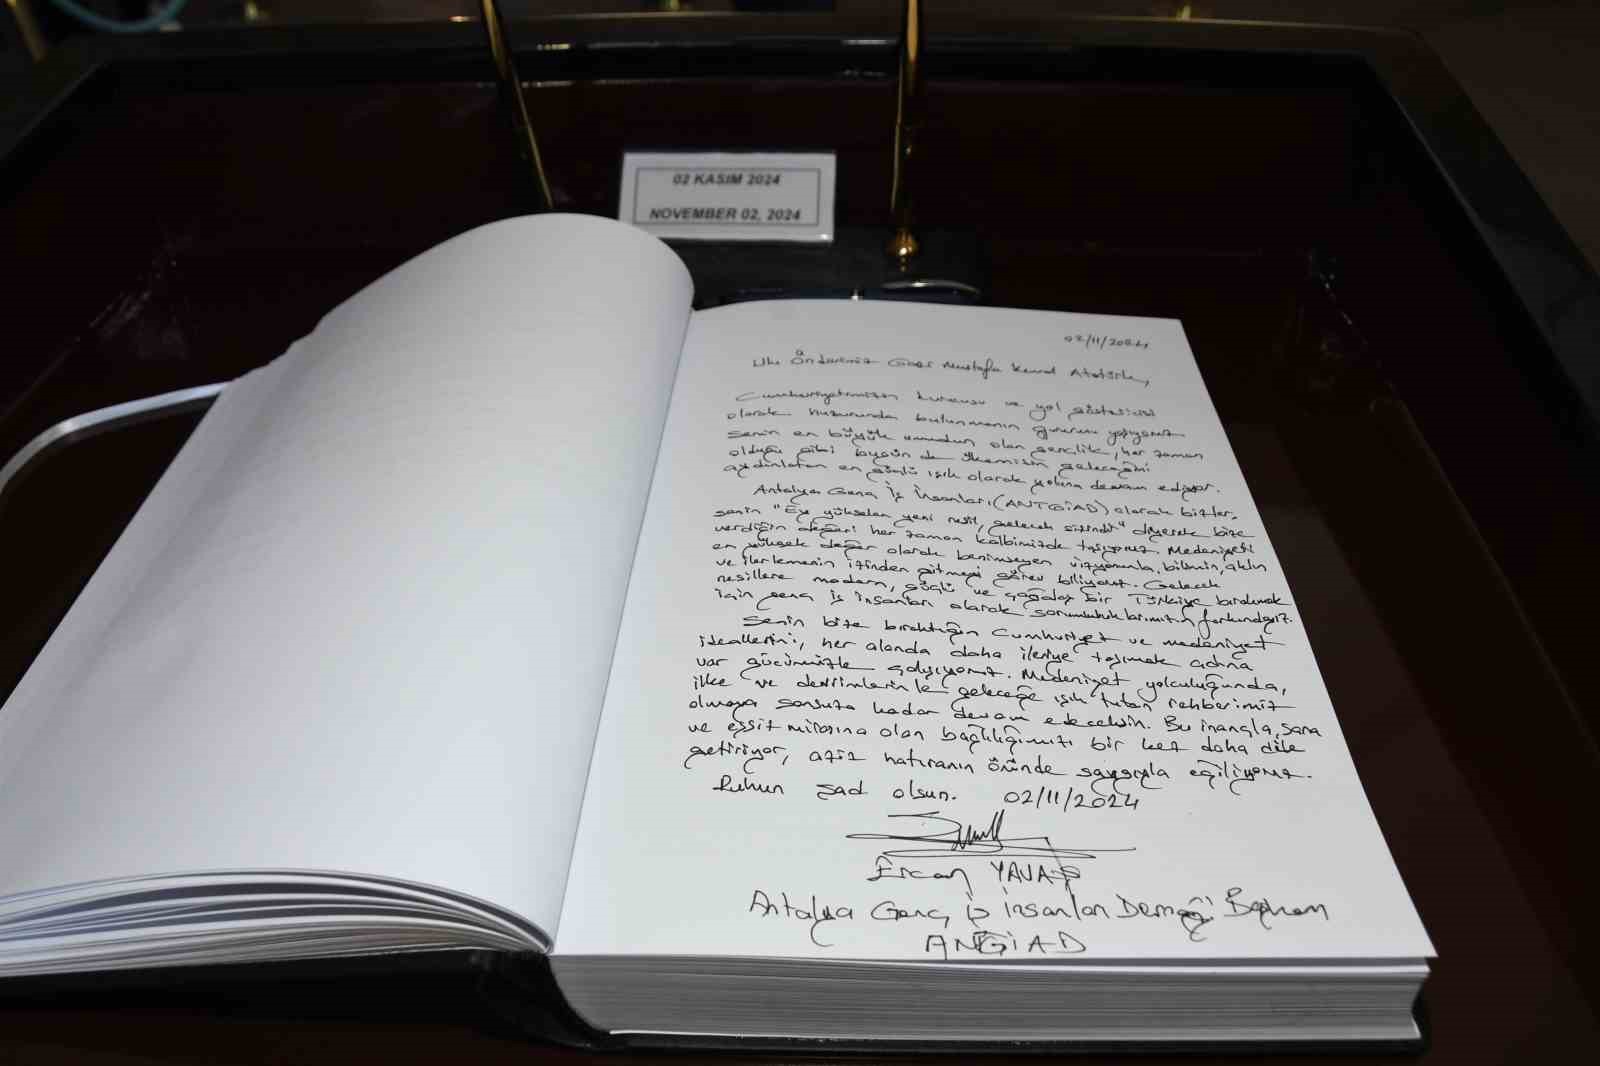 02 KASIM 2024
NOVEMBER 02, 2024
02/11/2024
Ulu Önderimiz Gazi Mustafa Kemal Atatürk,
Cumhuriyetimizin kurucusu ve yol göstericisi
olarak huzurunda bulunmanın gururunu yaşıyoruz.
Senin en büyük umudun olan gençlik, her zaman
olduğu gibi bugün de ülkemizin geleceğini
aydınlatan en güçlü ışık olarak yoluna devam ediyor.
Antalya Genç İş İnsanları (ANTGİAD) olarak bizler,
senin "Ey yükselen yeni nesil, gelecek sizindir" diyerek bize
verdiğin değeri her zaman kalbimizde taşıyoruz. Medeniyeti
en yüksek değer olarak benimseyen vizyonunla, bilimin, aklın
ve ilerlemenin izinden gitmeyi görev biliyoruz. Gelecek
nesillere modern, güçlü ve çağdaş bir Türkiye bırakmak
için genç iş insanları olarak sorumluluklarımızın farkındayız.
Senin bize bıraktığın Cumhuriyet ve medeniyet
ideallerini, her alanda daha ileriye taşımak adına
var gücümüzle çalışıyoruz. Medeniyet yolculuğunda,
ilke ve devrimlerinle geleceğe ışık tutan rehberimiz
olmaya sonsuza kadar devam edeceksin. Bu inançla, sana
ve eşsiz mirasına olan bağlılığımızı bir kez daha dile
getiriyor, aziz hatıranın önünde saygıyla eğiliyoruz.
Ruhun şad olsun. 02/11/2024
Ercan YAVAŞ
Antalya Genç İş İnsanları Derneği Başkanı
ANTGİAD